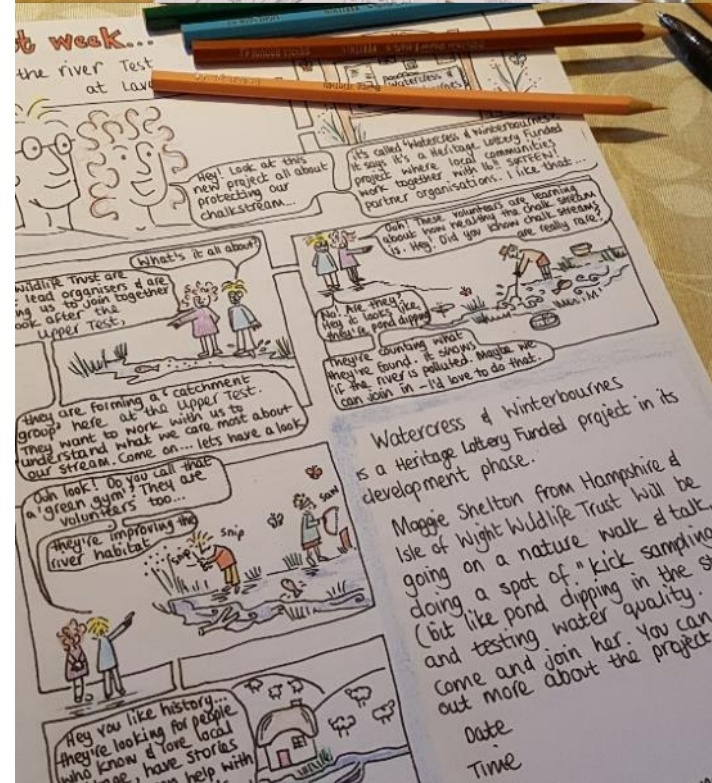 t week...
the river Test
at Lave
Watercress &
Hey! Look at this
new project all about
protecting our
chalkstream...
it's called 'Watercress & Winterbournes'.
It says it's a Heritage Lottery Funded
project where local communities
work together with 16!! SIXTEEN!
partner organisations. I like that...
What's it all about?
Wildlife Trust are
lead organisers & are
ng us to join together
ook after the
upper Test,
Ooh! These volunteers are learning
about how healthy the chalk stream
is. Hey! Did you know chalk streams
are really rare?
No! Are they.
Hey it looks like
they're pond dipping
They're counting what
they've found. it shows
if the river is polluted. Maybe we
can join in - I'd love to do that.
they are forming a 'catchment
group' here at the upper Test.
They want to work with us to
understand what we care most about
our stream. Come on... lets have a look
Ooh look! Do you call that
a 'green gym'? They are
volunteers too...
they're improving the
river habitat
snip
snip
saw
Hey you like history...
they're looking for people
who know & love local
have stories
help with
Watercress & Winterbournes
is a Heritage Lottery Funded project in its
development phase.
Maggie Shelton from Hampshire &
Isle of Wight Wildlife Trust will be
going on a nature walk & talk,
doing a spot of "kick sampling
(bit like pond dipping in the st
and testing water quality.
come and join her. You can
out more about the project
Date
Time